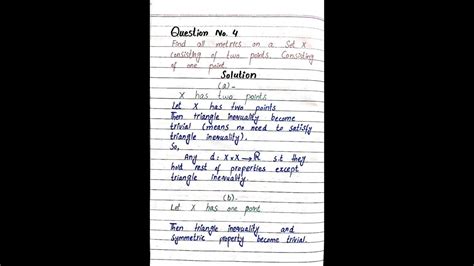 Question No. 4
Find all metrics on a Set X
consisting of two points. Consisting
of one point.
Solution
(a)-
X has two points
Let X has two points
Then triangle inequality become
trivial (means no need to satisfy
triangle inequality).
So,
Any d: X×X→ℝ s.t they
hold rest of properties except
triangle inequality
(b)-
Let X has one point
Then triangle inequality and
symmetric property become trivial.